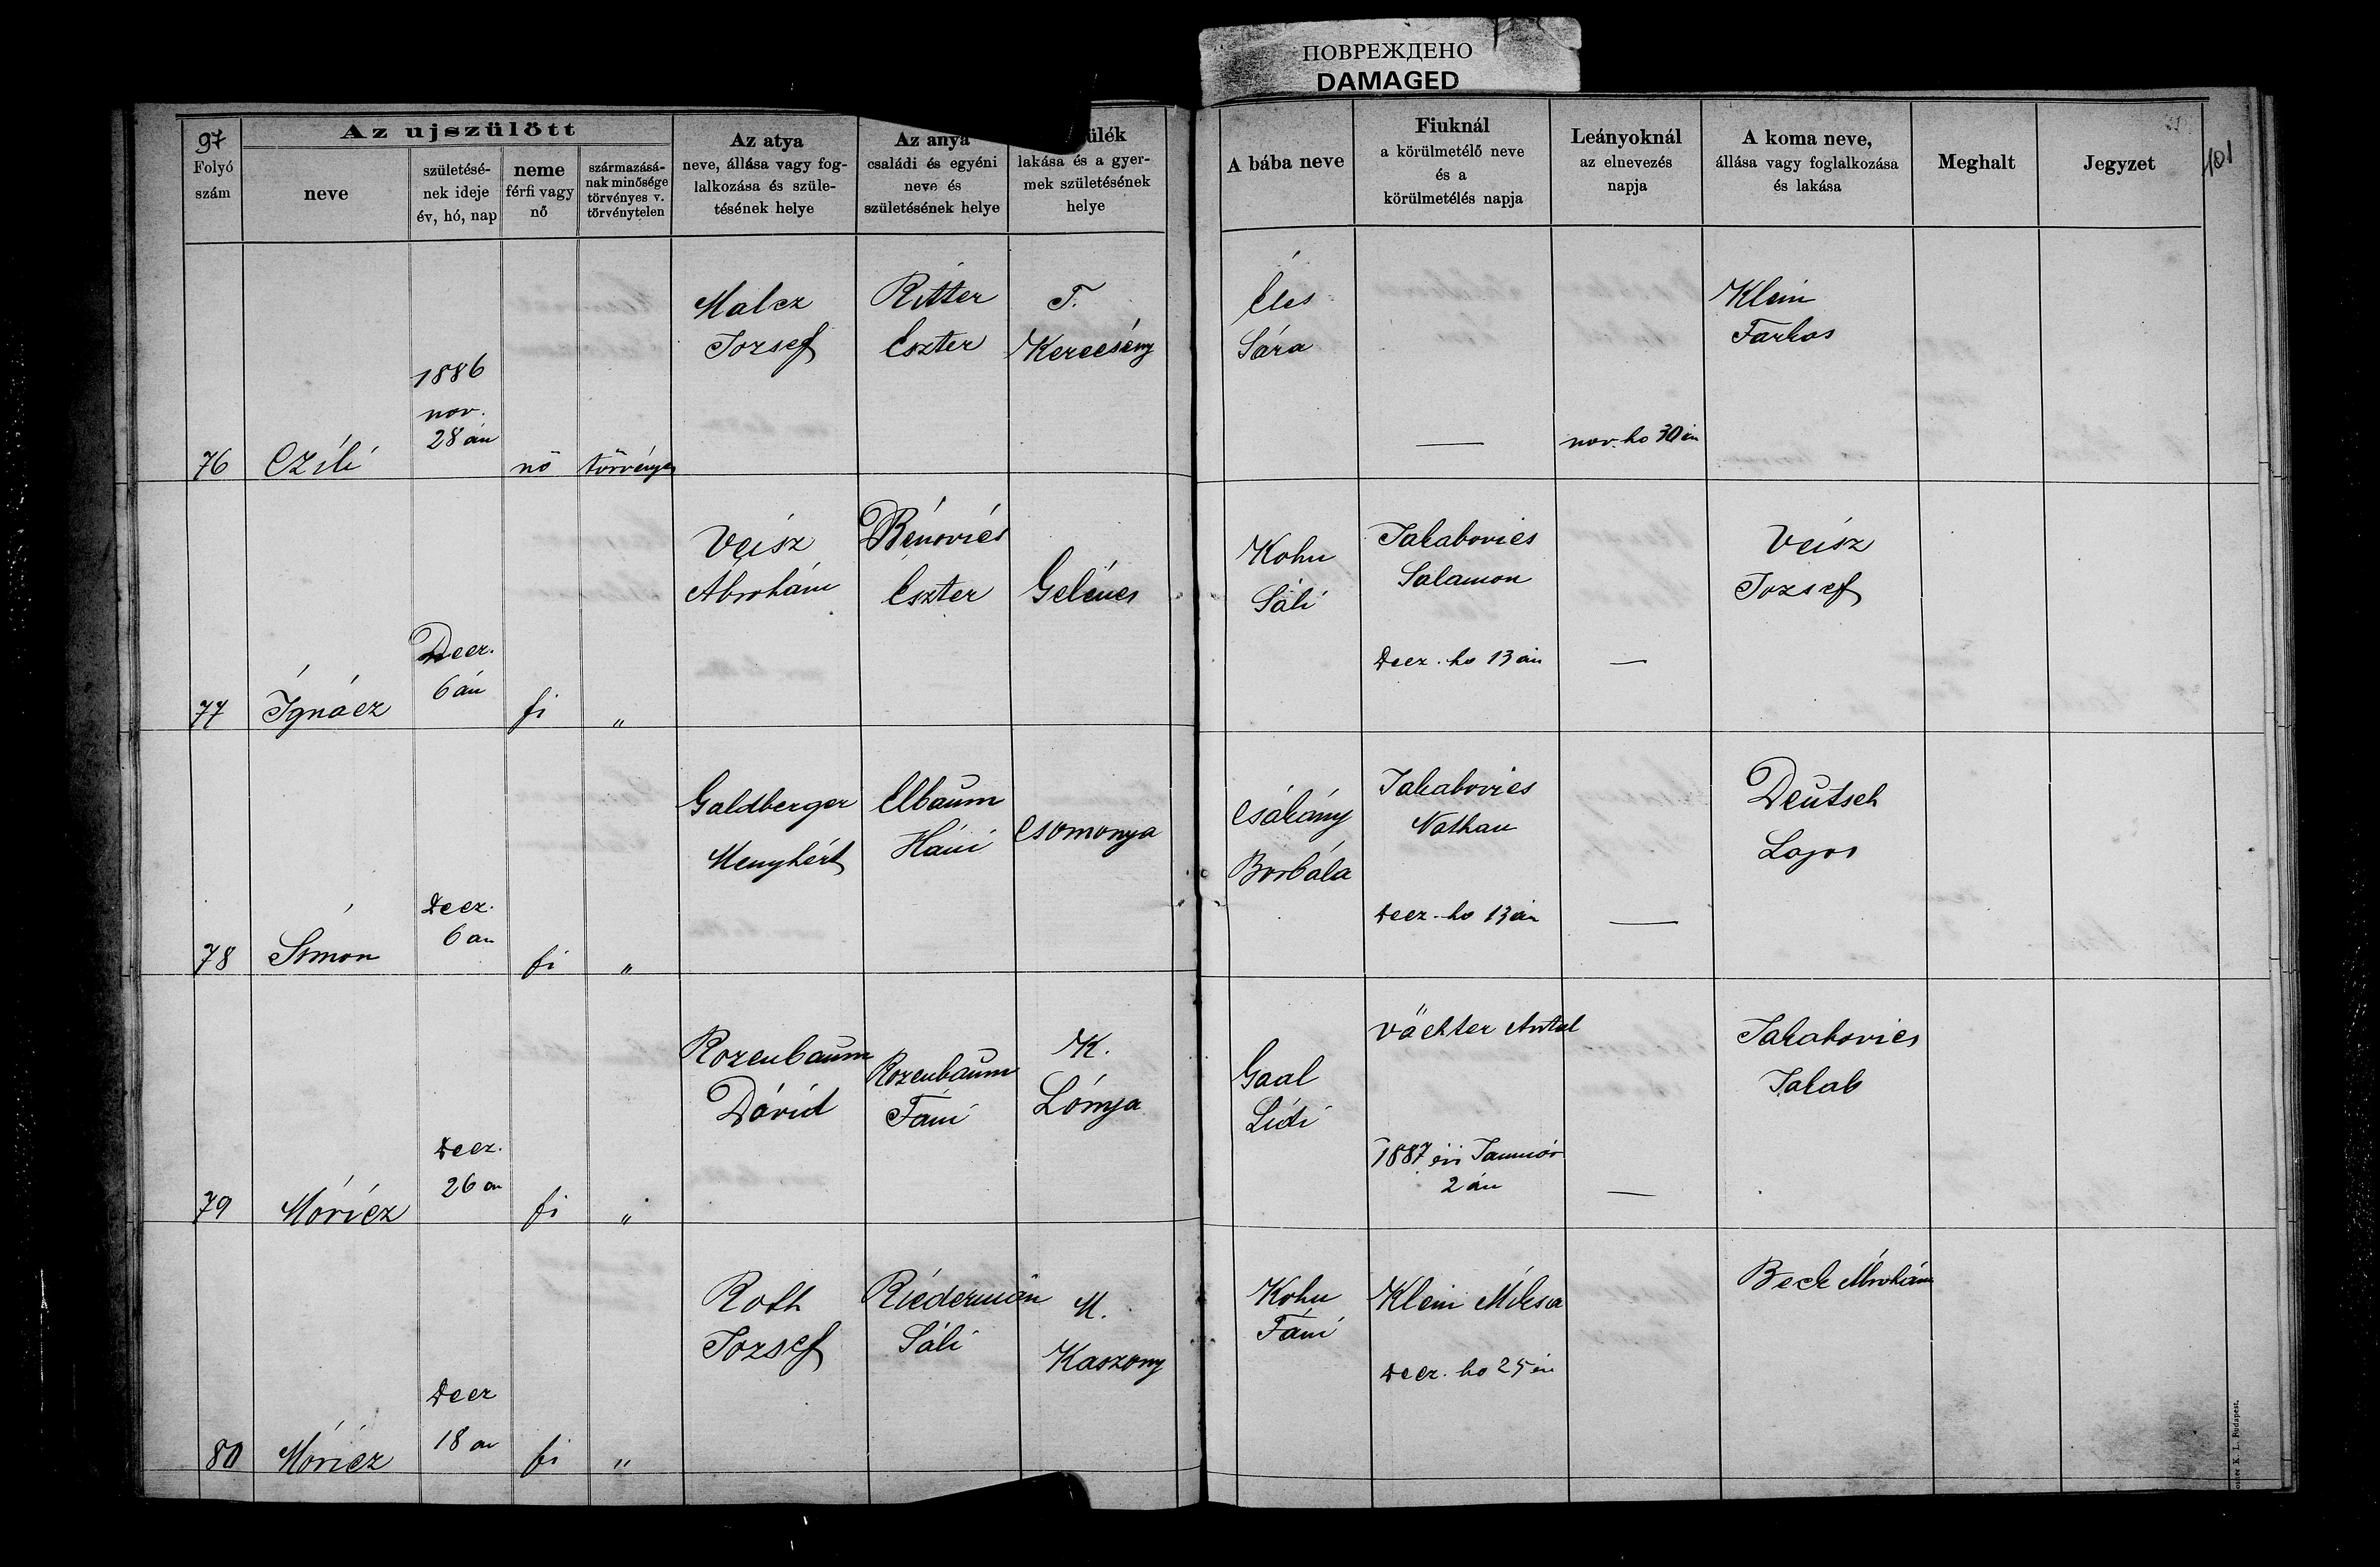 ПОВРЕЖДЕНО
DAMAGED
97
Folyó
szám
Az ujszülött
neve
születésé-
nek ideje
év, hó, nap
neme
férfi vagy
nő
származásá-
nak minősége
törvényes v.
törvénytelen
Az atya
neve, állása vagy fog-
lalkozása és szüle-
tésének helye
Az anya
családi és egyéni
neve és
születésének helye
ülék
lakása és a gyer-
mek születésének
helye
A bába neve
Fiuknál
a körülmetélő neve
és a
körülmetélés napja
Leányoknál
az elnevezés
napja
A koma neve,
állása vagy foglalkozása
és lakása
Meghalt
Jegyzet
101
76
Czili
1886
nov.
28 án
nő
törvényes
Malcz
Jozsef
Ritter
Eszter
T.
Kerecsény
Éles
Sára
—
nov. ho 30 án
Klein
Farkas
77
Ignácz
Decz.
6 án
fi
„
Veisz
Abrohám
Bénovics
Eszter
Gelénes
Kohn
Sáli
Jakabovics
Salamon
Decz. ho 13 án
—
Veisz
Jozsef
78
Simon
Decz.
6 an
fi
„
Galdberger
Menyhért
Elbaum
Háni
Csomonya
Csákány
Borbála
Jakabovics
Nathan
Decz. ho 13 án
—
Deutsch
Lajos
79
Móricz
Decz.
26 an
fi
„
Rozenbaum
Dávid
Rozenbaum
Fáni
K.
Lónya
Gaal
Lidi
Vächter Antal
1887 évi Január
2 án
—
Jakabovics
Jakab
80
Móricz
Decz
18 an
fi
„
Roth
Jozsef
Riedermán
Sáli
M.
Kaszony
Kohn
Fáni
Klein Miksa
Decz. ho 25 én
Beck Abrohám
K. L. Budapest.